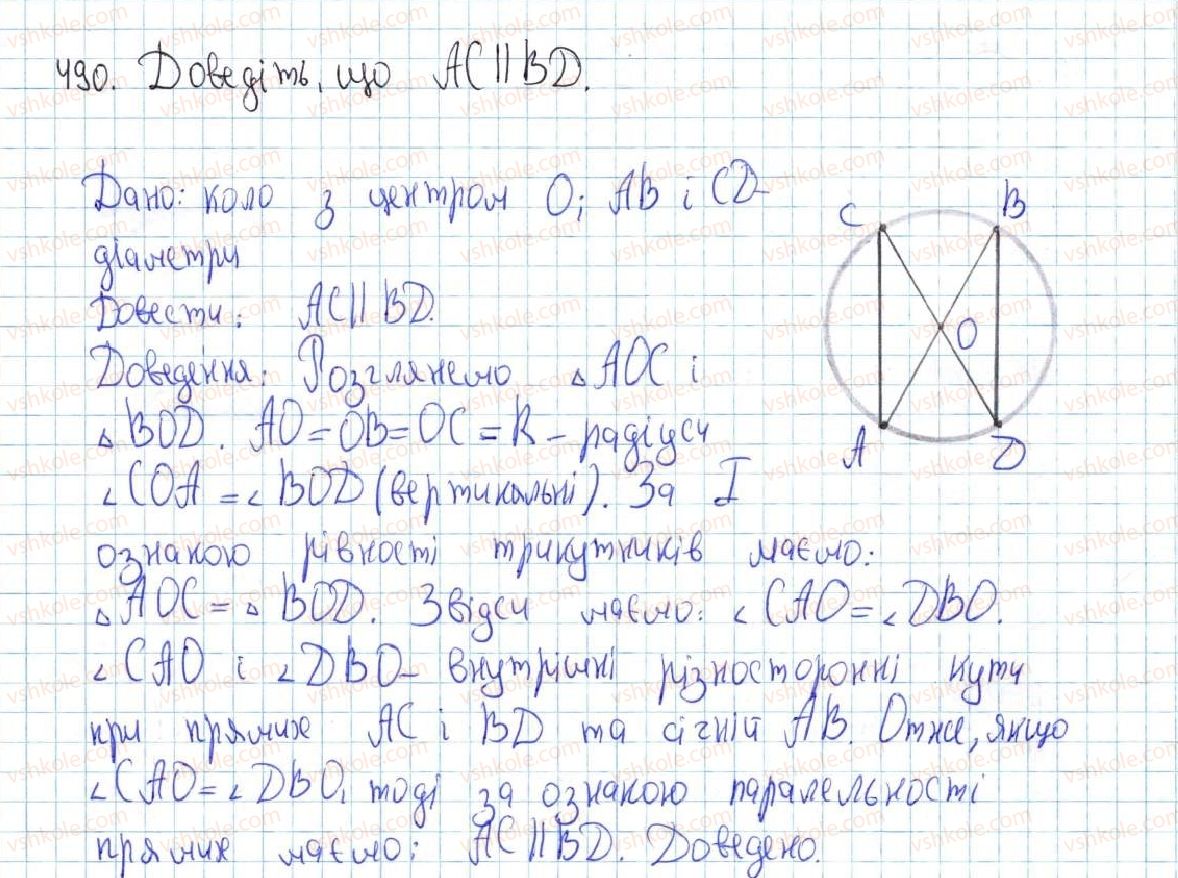 490. Доведіть, що AC||BD.
Дано: коло з центром O; AB і CD-
діаметри
Довести: AC||BD.
Доведення: Розглянемо △AOC і
△BOD. AO=OB=OC=R-радіуси
∠COA=∠BOD(вертикальні). За I
ознакою рівності трикутників маємо:
△AOC=△BOD. Звідси маємо: ∠CAO=∠DBO.
∠CAO і ∠DBO- внутрішні різносторонні кути
при прямих AC і BD та січній AB. Отже, якщо
∠CAO=∠DBO, тоді за ознакою паралельності
прямих маємо: AC||BD. Доведено.
C B
O
A D
vshkole.com